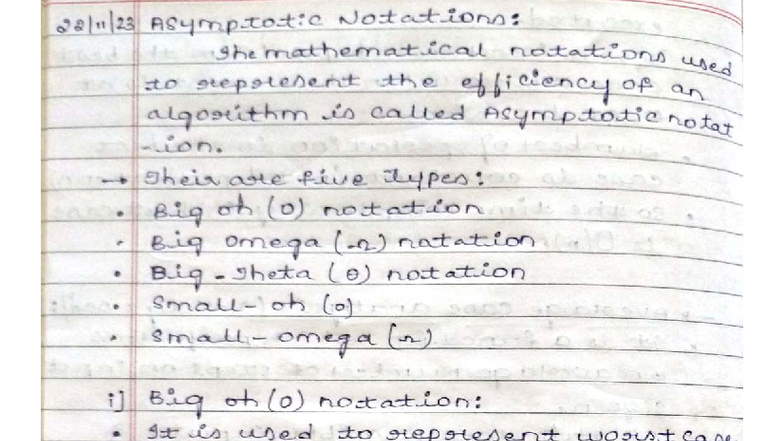 22/11/23 Asymptotic Notations:
The mathematical notations used
to represent the efficiency of an
algorithm is called Asymptotic notat
-ion.
→ Their are five types:
• Big oh (O) notation
• Big omega (Ω) notation
• Big-Theta (θ) notation
• Small-oh (o)
• Small-omega (Ω)
i] Big oh (O) notation:
• It is used to represent worst case